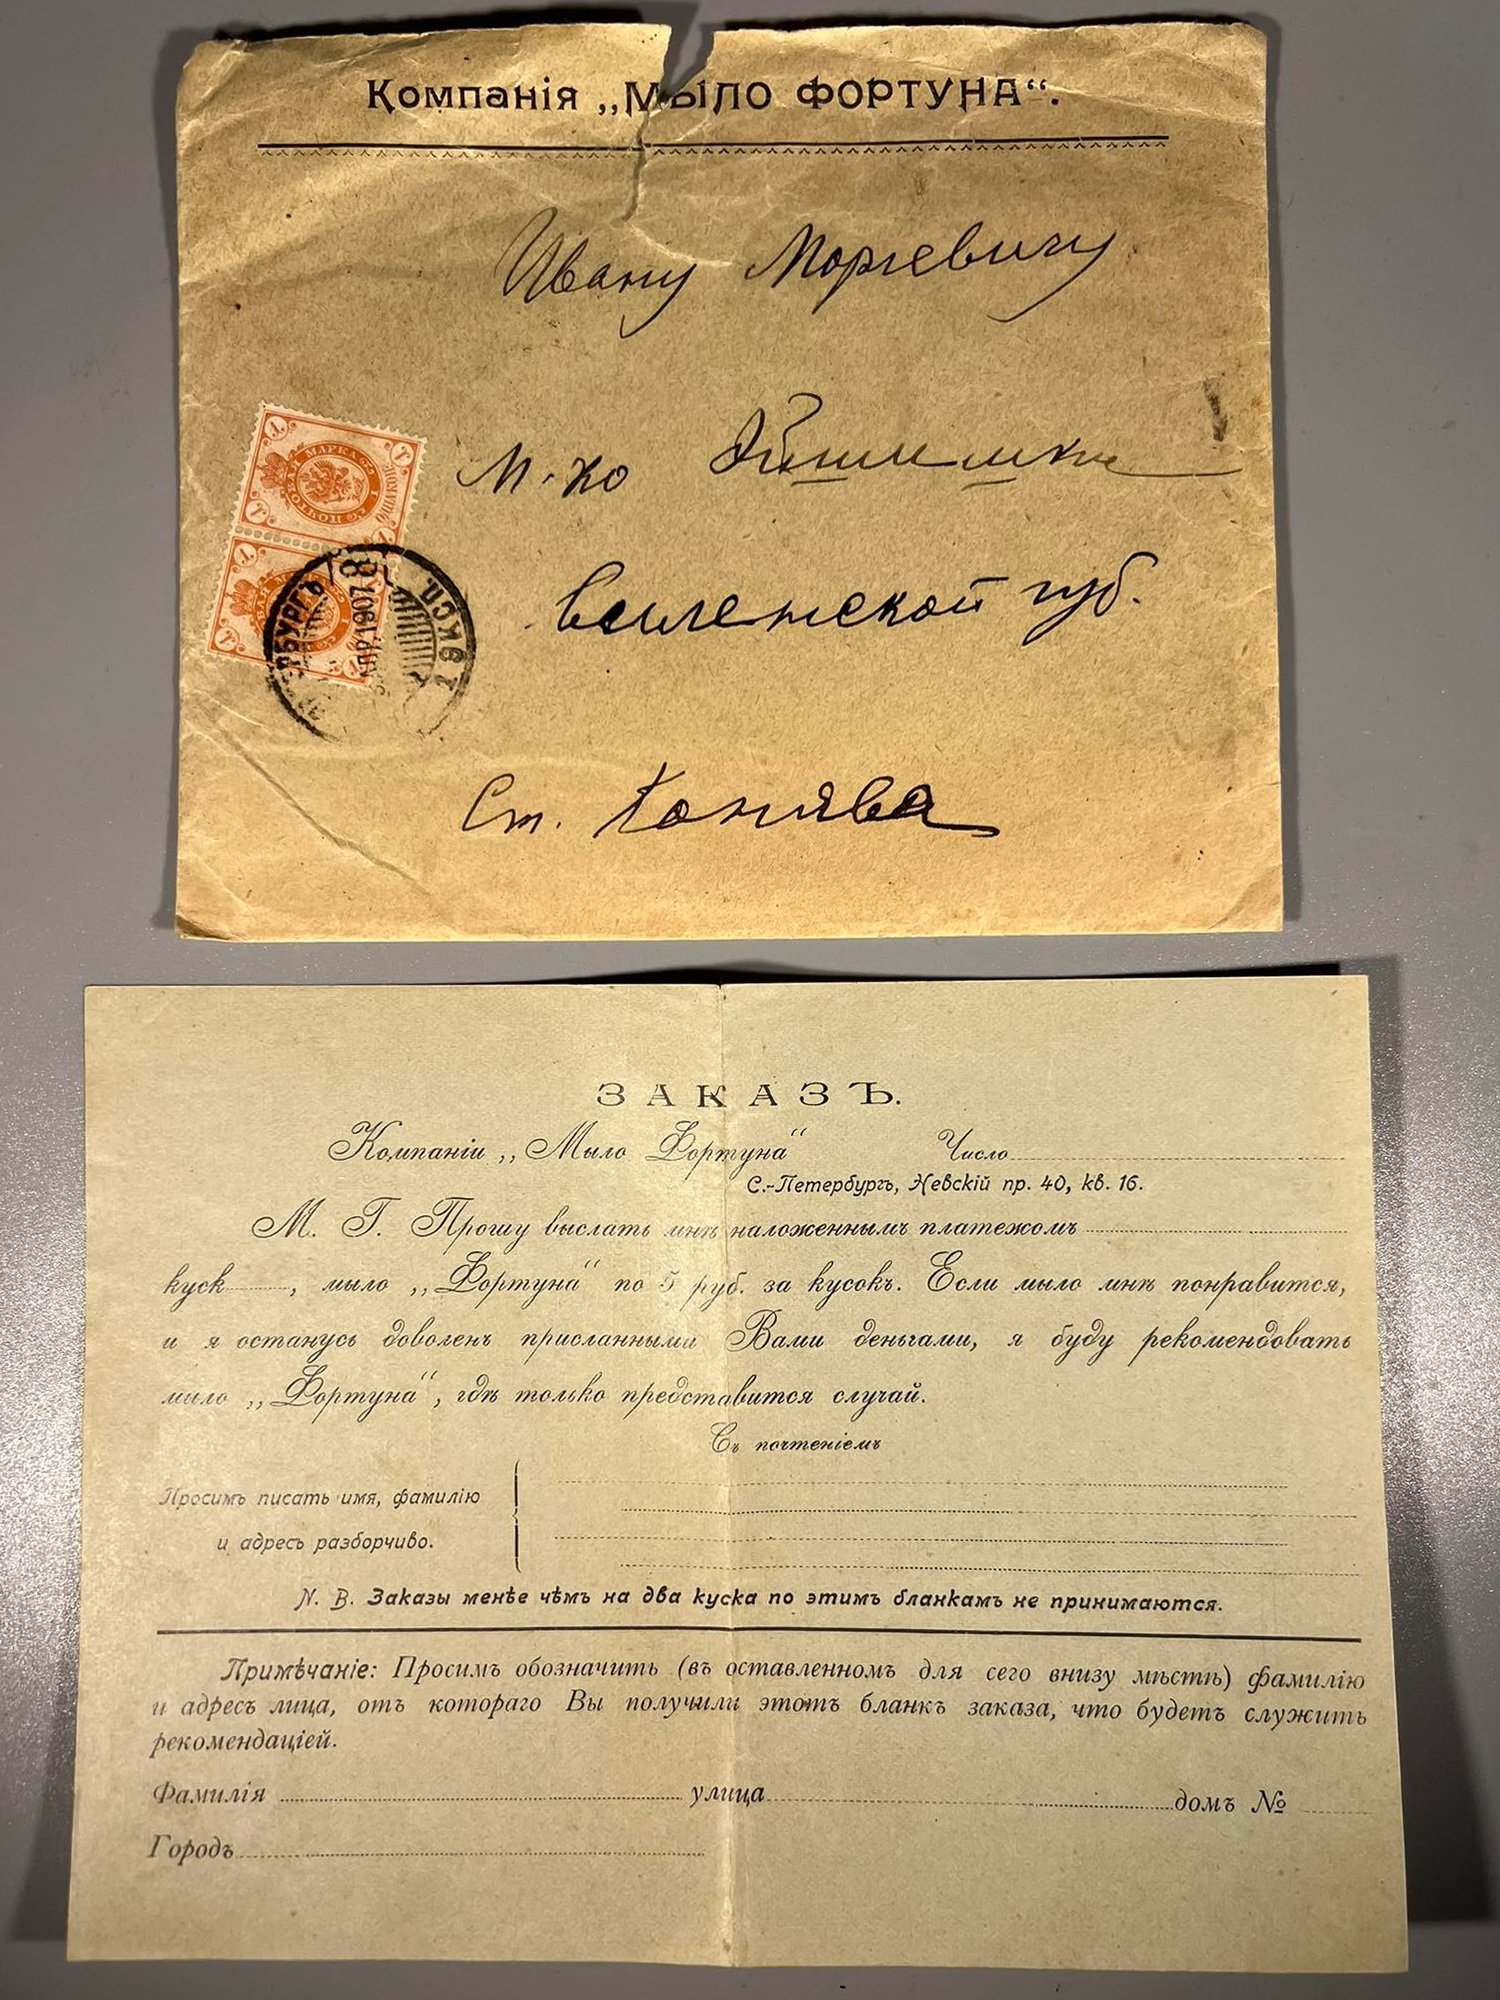 Компанія „МЫЛО ФОРТУНА“.
Ивану
М-ко Эйшишки
Виленской губ.
Ст.
1907
ЗАКАЗЪ.
Компаніи „Мыло Фортуна“ Число
С.-Петербургъ, Невскій пр. 40, кв. 16.
М. Г. Прошу выслать мнѣ наложеннымъ платежомъ
куск , мыло „Фортуна“ по 5 руб. за кусокъ. Если мыло мнѣ понравится,
и я останусь доволенъ присланными Вами деньгами, я буду рекомендовать
мыло „Фортуна“, гдѣ только представится случай.
Съ почтеніемъ
Просимъ писать имя, фамилію
и адресъ разборчиво.
N. B. Заказы менѣе чѣмъ на два куска по этимъ бланкамъ не принимаются.
Примѣчаніе: Просимъ обозначить (въ оставленномъ для сего внизу мѣстѣ) фамилію
и адресъ лица, отъ котораго Вы получили этотъ бланкъ заказа, что будетъ служить
рекомендаціей.
Фамилія улица домъ №
Городъ